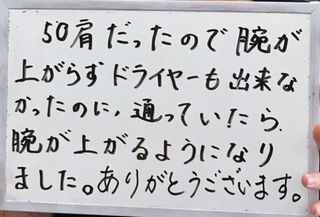 50肩だったので腕が
上がらずドライヤーも出来な
かったのに、通っていたら、
腕が上がるようになり
ました。ありがとうございます。